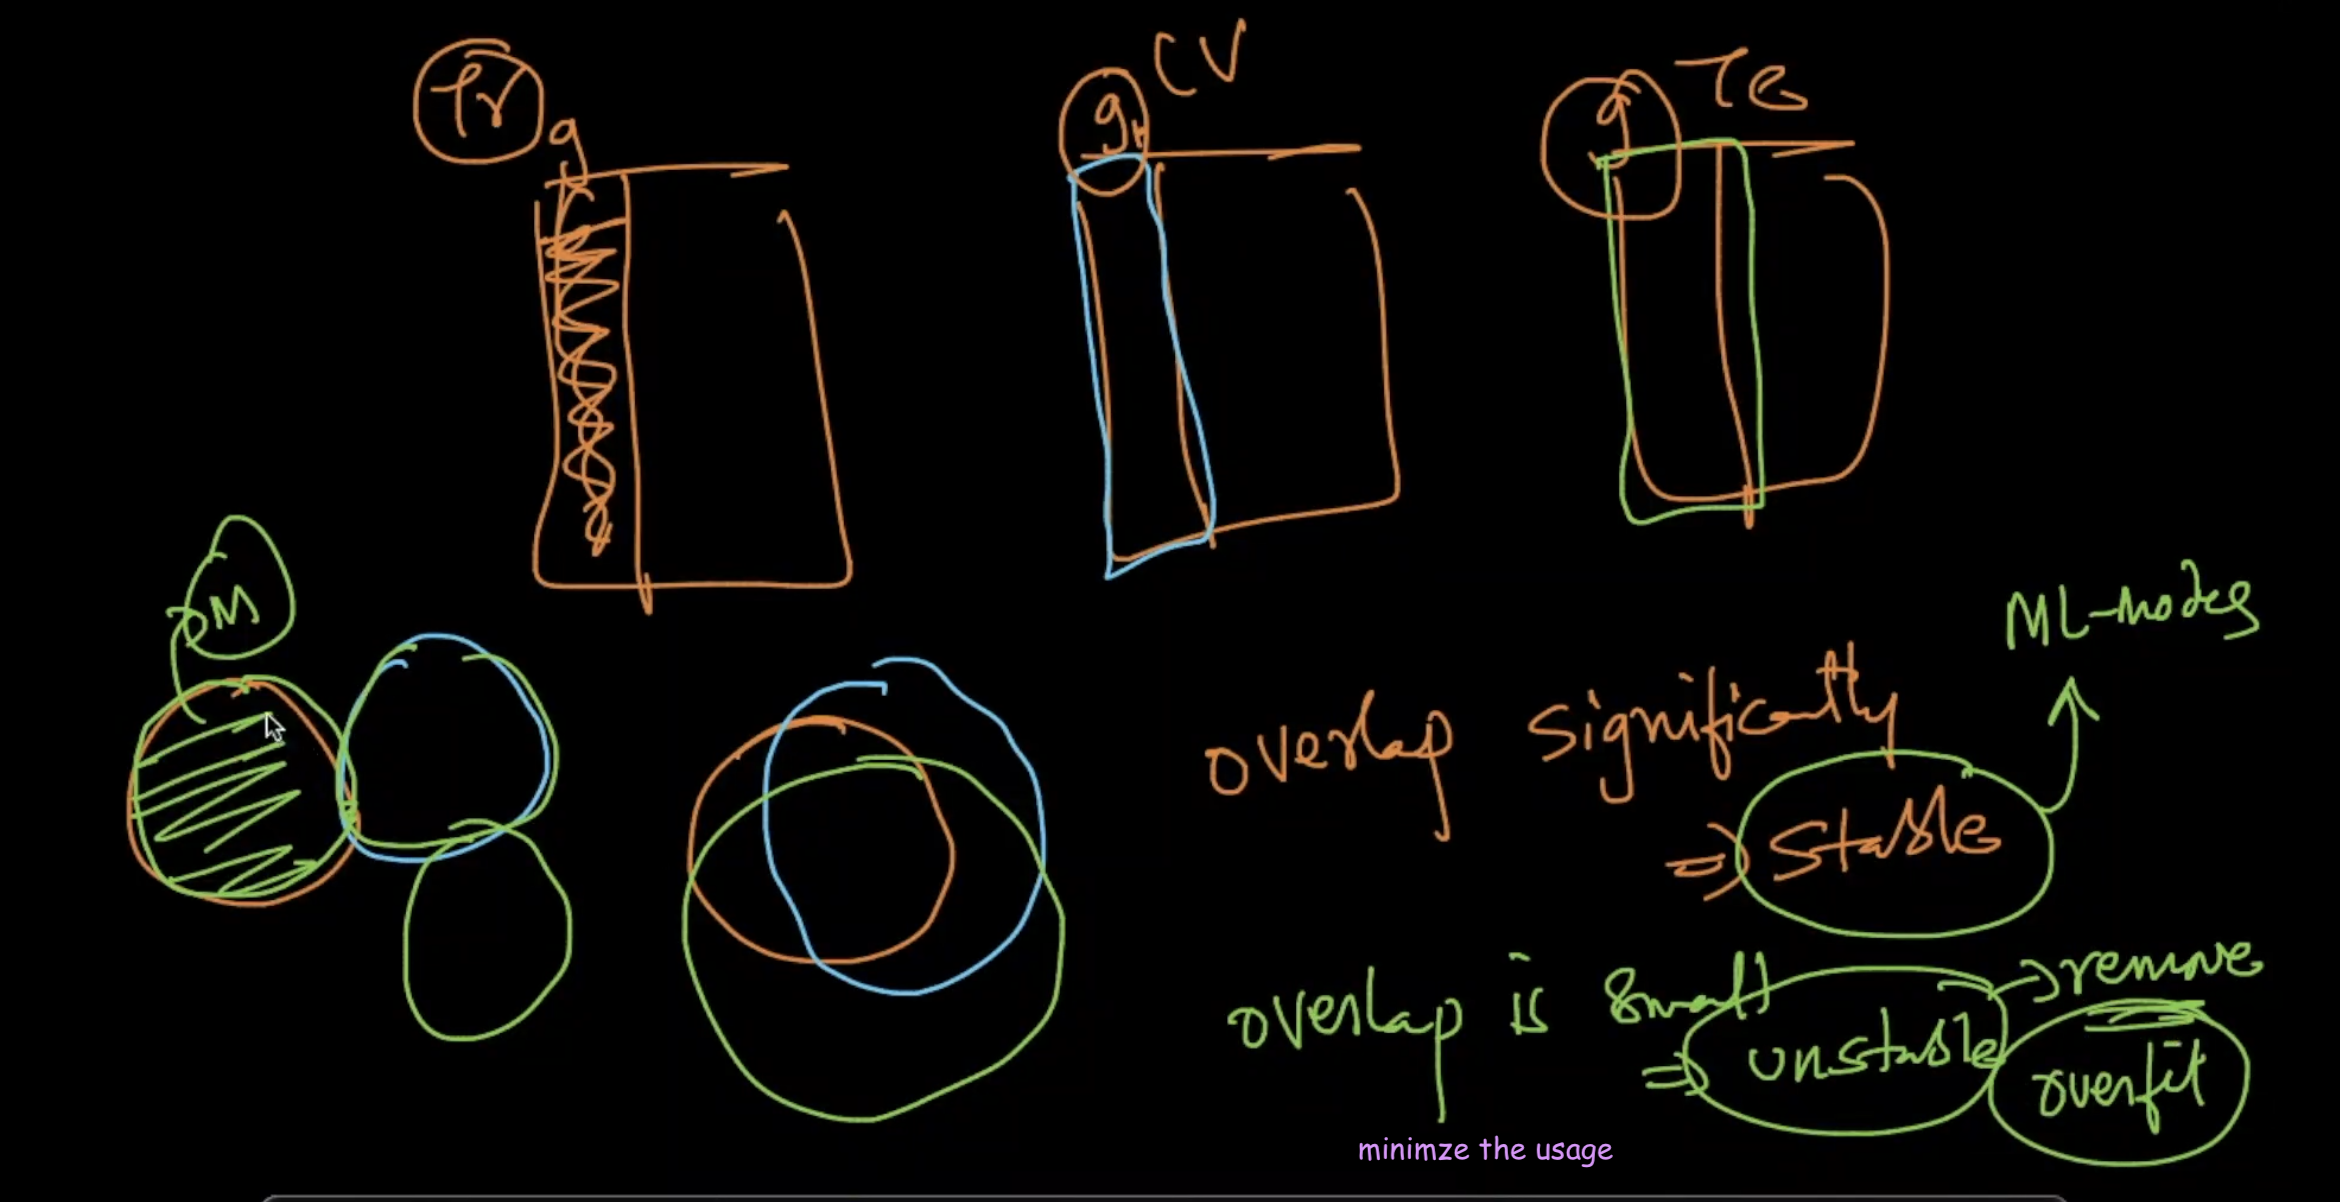 Tr
CV
Te
g
g
g
M
ML-models
overlap significantly
=> stable
overlap is small
=> unstable
-> remove
overfit
minimze the usage